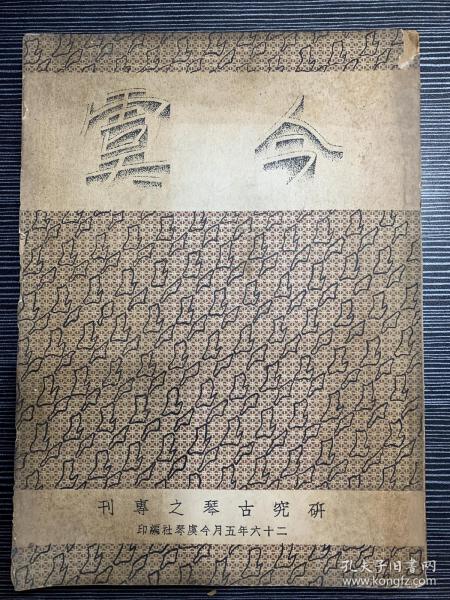 今虞
研究古琴之專刊
二十六年五月今虞琴社編印
孔夫子旧书网
www.kongfz.com